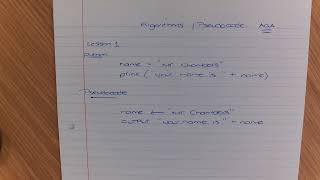 Algorithms / Pseudocode AQA
Lesson 1
Python
name = "Mr Chambers"
print ("your name is " + name)
Pseudocode
name ← "Mr Chambers"
OUTPUT "your name is " + name